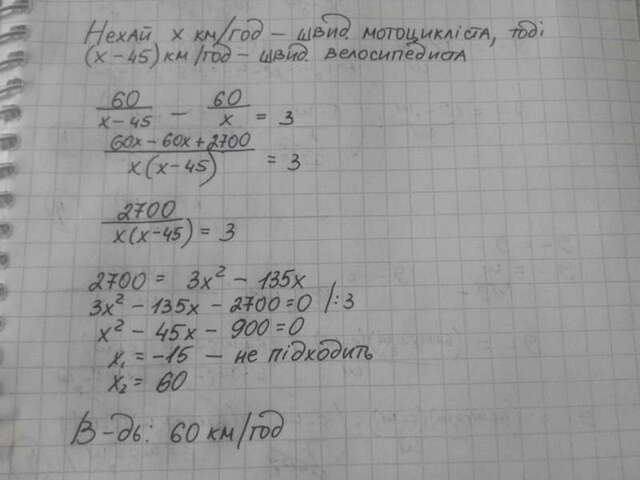 Нехай x км/год – швид. мотоцикліста, тоді
(x – 45) км/год – швид. велосипедиста
60/(x – 45) – 60/x = 3
(60x – 60x + 2700)/(x(x – 45)) = 3
2700/(x(x – 45)) = 3
2700 = 3x² – 135x
3x² – 135x – 2700 = 0 /:3
x² – 45x – 900 = 0
x₁ = –15 – не підходить
x₂ = 60
В–дь: 60 км/год